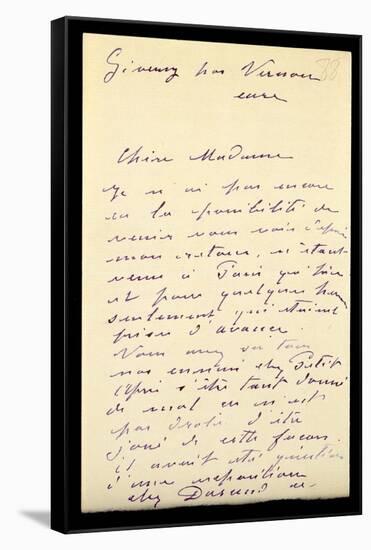 88
Giverny par Vernon
eure
Chère Madame
Je n'ai pas encore
eu la possibilité de
venir vous voir depuis
mon retour, n'étant
venu à Paris qu'hier
et pour quelques heures
seulement, qui étaient
prises d'avance.
Vous avez su tous
nos ennuis chez Petit
après s'être tant donné
de mal ce n'est
pas drôle d'être
joué de cette façon.
il avait été question
d'une exposition
chez Durand